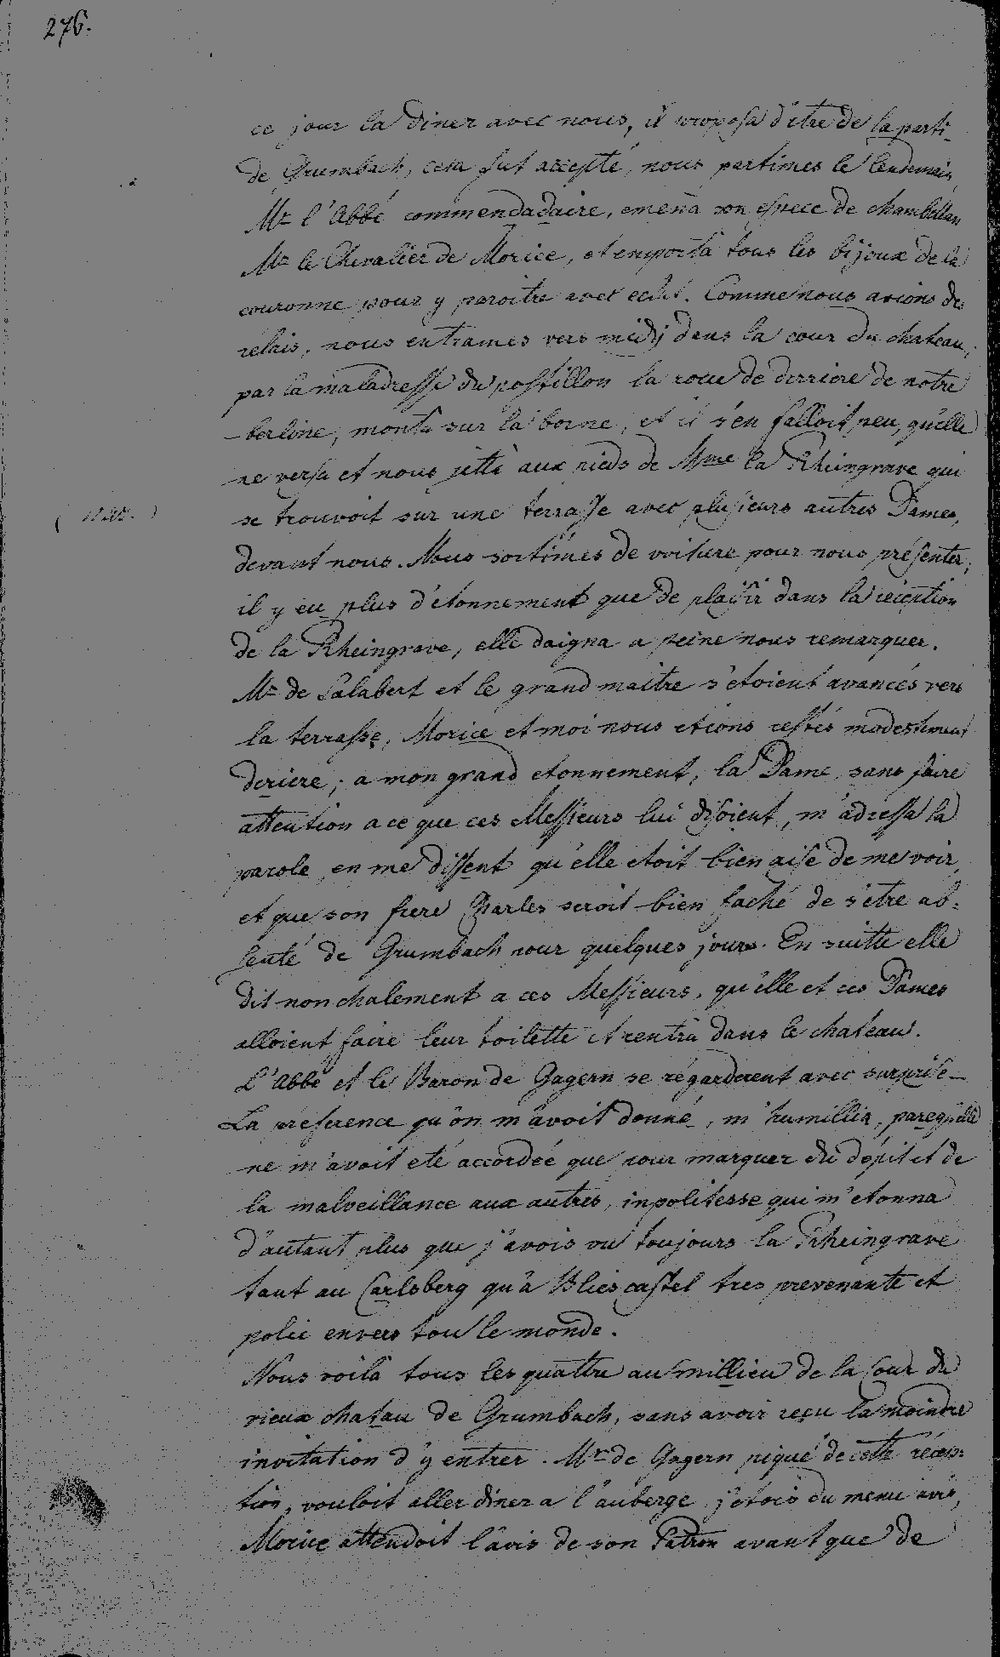 276.
ce jour la diner avec nous, il proposa d'etre de la parti
de Grumbach, cela fut accepté, nous partimes le lendemain,
Mr l'Abbé commendadaire, emena son espece de chambellan
Mr le Chevalier de Morice, et emporta tous les bijoux de la
couronne pour y paroitre avec eclat. Comme nous avions des
relais, nous entrames vers midÿ dans la cour du chateau,
par la maladresse du postillon la roue de derriere de notre
berline, monta sur la borne, et il s'en falloit peu, qu'elle
ne versa et nous jetté aux pieds de Mme la Rheingrave qui
se trouvoit sur une terrasse avec plusieurs autres Dames,
devant nous. Nous sortimes de voiture pour nous présenter,
il y eu plus d'etonnement que de plaisir dans la réception
de la Rheingrave, elle daigna a peine nous remarquer.
Mr de Salabert et le grand maitre s'etoient avancés vers
la terrasse, Morice et moi nous etions restés modestement
deriere; a mon grand etonnement, la Dame, sans faire
attention a ce que ces Messieurs lui disoient, m'adressa la
parole, en me dissent qu'elle etoit bien aise de me voir,
et que son frere Charles seroit bien faché de s'etre ab-
senté de Grumbach pour quelques jours. En suitte elle
dit nonchalement a ces Messieurs, qu'elle et ces Dames
alloient faire leur toilette et rentra dans le chateau.
L'Abbé et le Baron de Gagern se régarderent avec surprise
La preference qu'on m'avoit donné, m'humillia, parcequ'elle
ne m'avoit eté accordée que pour marquer du dépit et de
la malveillance aux autres, inpolitesse qui m'etonna
d'autant plus que j'avois vu toujours la Rheingrave
tant au Carlsberg qu'à Bliescastel tres prevenante et
polie envers tou le monde.
Nous voilà tous les quattre au millieu de la Cour du
vieux chatau de Grumbach, sans avoir reçu la moindre
invitation d'y entrer. Mr de Gagern piqué de cette récep-
tion, vouloit aller diner a l'auberge, j'etois du meme avis,
Morice attendoit l'avis de son Patron avant que de